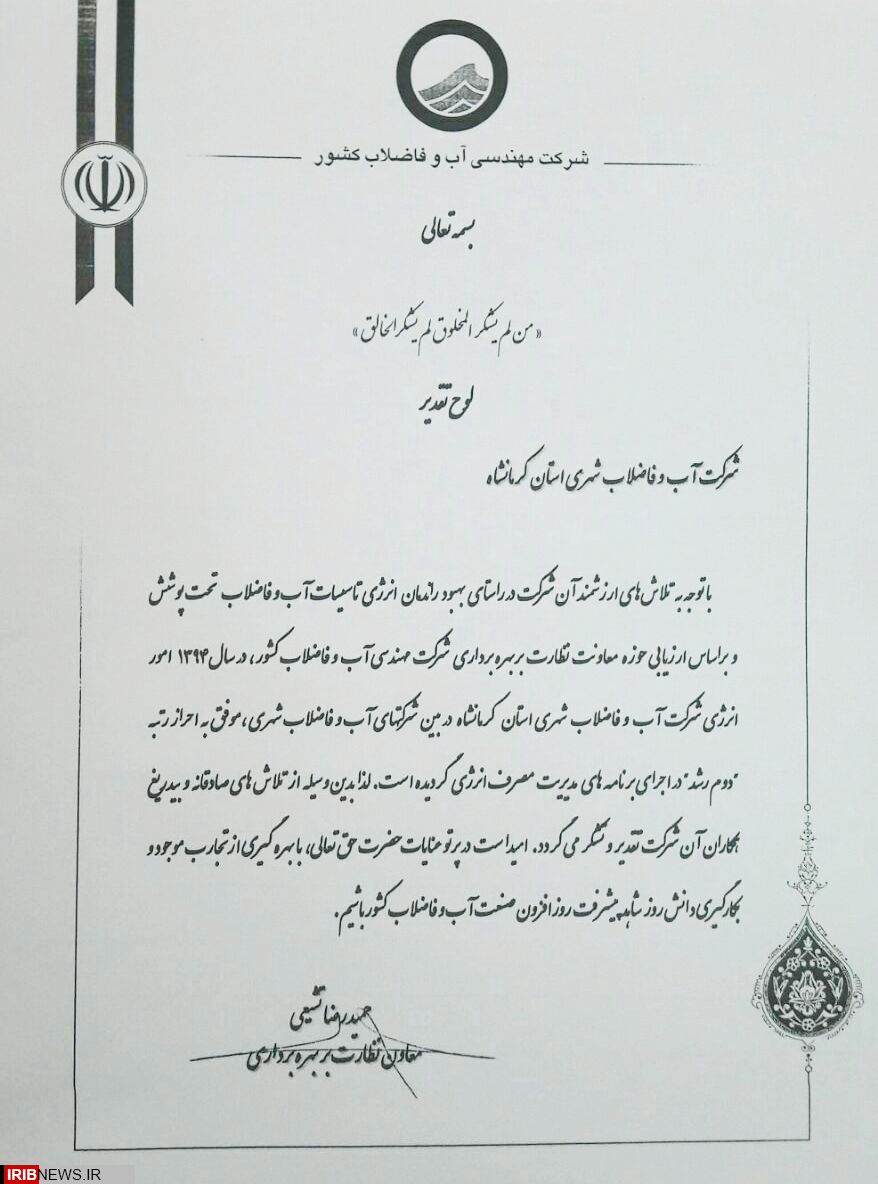 شرکت مهندسی آب و فاضلاب کشور
بسمه تعالی
« من لم یشکر المخلوق لم یشکر الخالق »
لوح تقدیر
شرکت آب و فاضلاب شهری استان کرمانشاه
با توجه به تلاش های ارزشمند آن شرکت در راستای بهبود راندمان انرژی تاسیسات آب و فاضلاب تحت پوشش
و بر اساس ارزیابی حوزه معاونت نظارت بر بهره برداری شرکت مهندسی آب و فاضلاب کشور ، در سال ۱۳۹۴ امور
انرژی شرکت آب و فاضلاب شهری استان کرمانشاه در بین شرکتهای آب و فاضلاب شهری ، موفق به احراز رتبه
"دوم رشد" در اجرای برنامه های مدیریت مصرف انرژی گردیده است. لذا بدین وسیله از تلاش های صادقانه و بیدریغ
همکاران آن شرکت تقدیر و تشکر می گردد. امید است در پرتو عنایات حضرت حق تعالی، با بهره گیری از تجارب موجود و
بکارگیری دانش روز شاهد پیشرفت روز افزون صنعت آب و فاضلاب کشور باشیم.
حمیدرضا تشیعی
معاون نظارت بر بهره برداری
IRIBNEWS.IR